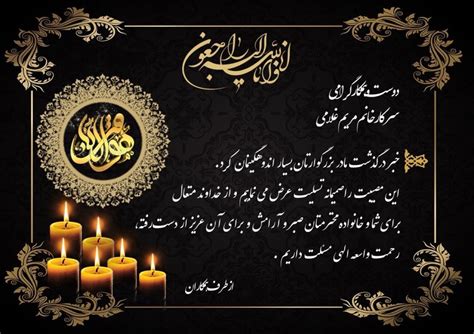 انا لله و انا الیه راجعون
هوالباقی
دوست و همکار گرامی
سرکار خانم مریم غلامی
خبر درگذشت مادر بزرگوارتان بسیار اندوهگینمان کرد.
این مصیبت را صمیمانه تسلیت عرض می نماییم و از خداوند متعال
برای شما و خانواده محترمتان صبر و آرامش و برای آن عزیز از دست رفته،
رحمت واسعه الهی مسئلت داریم.
از طرف همکاران